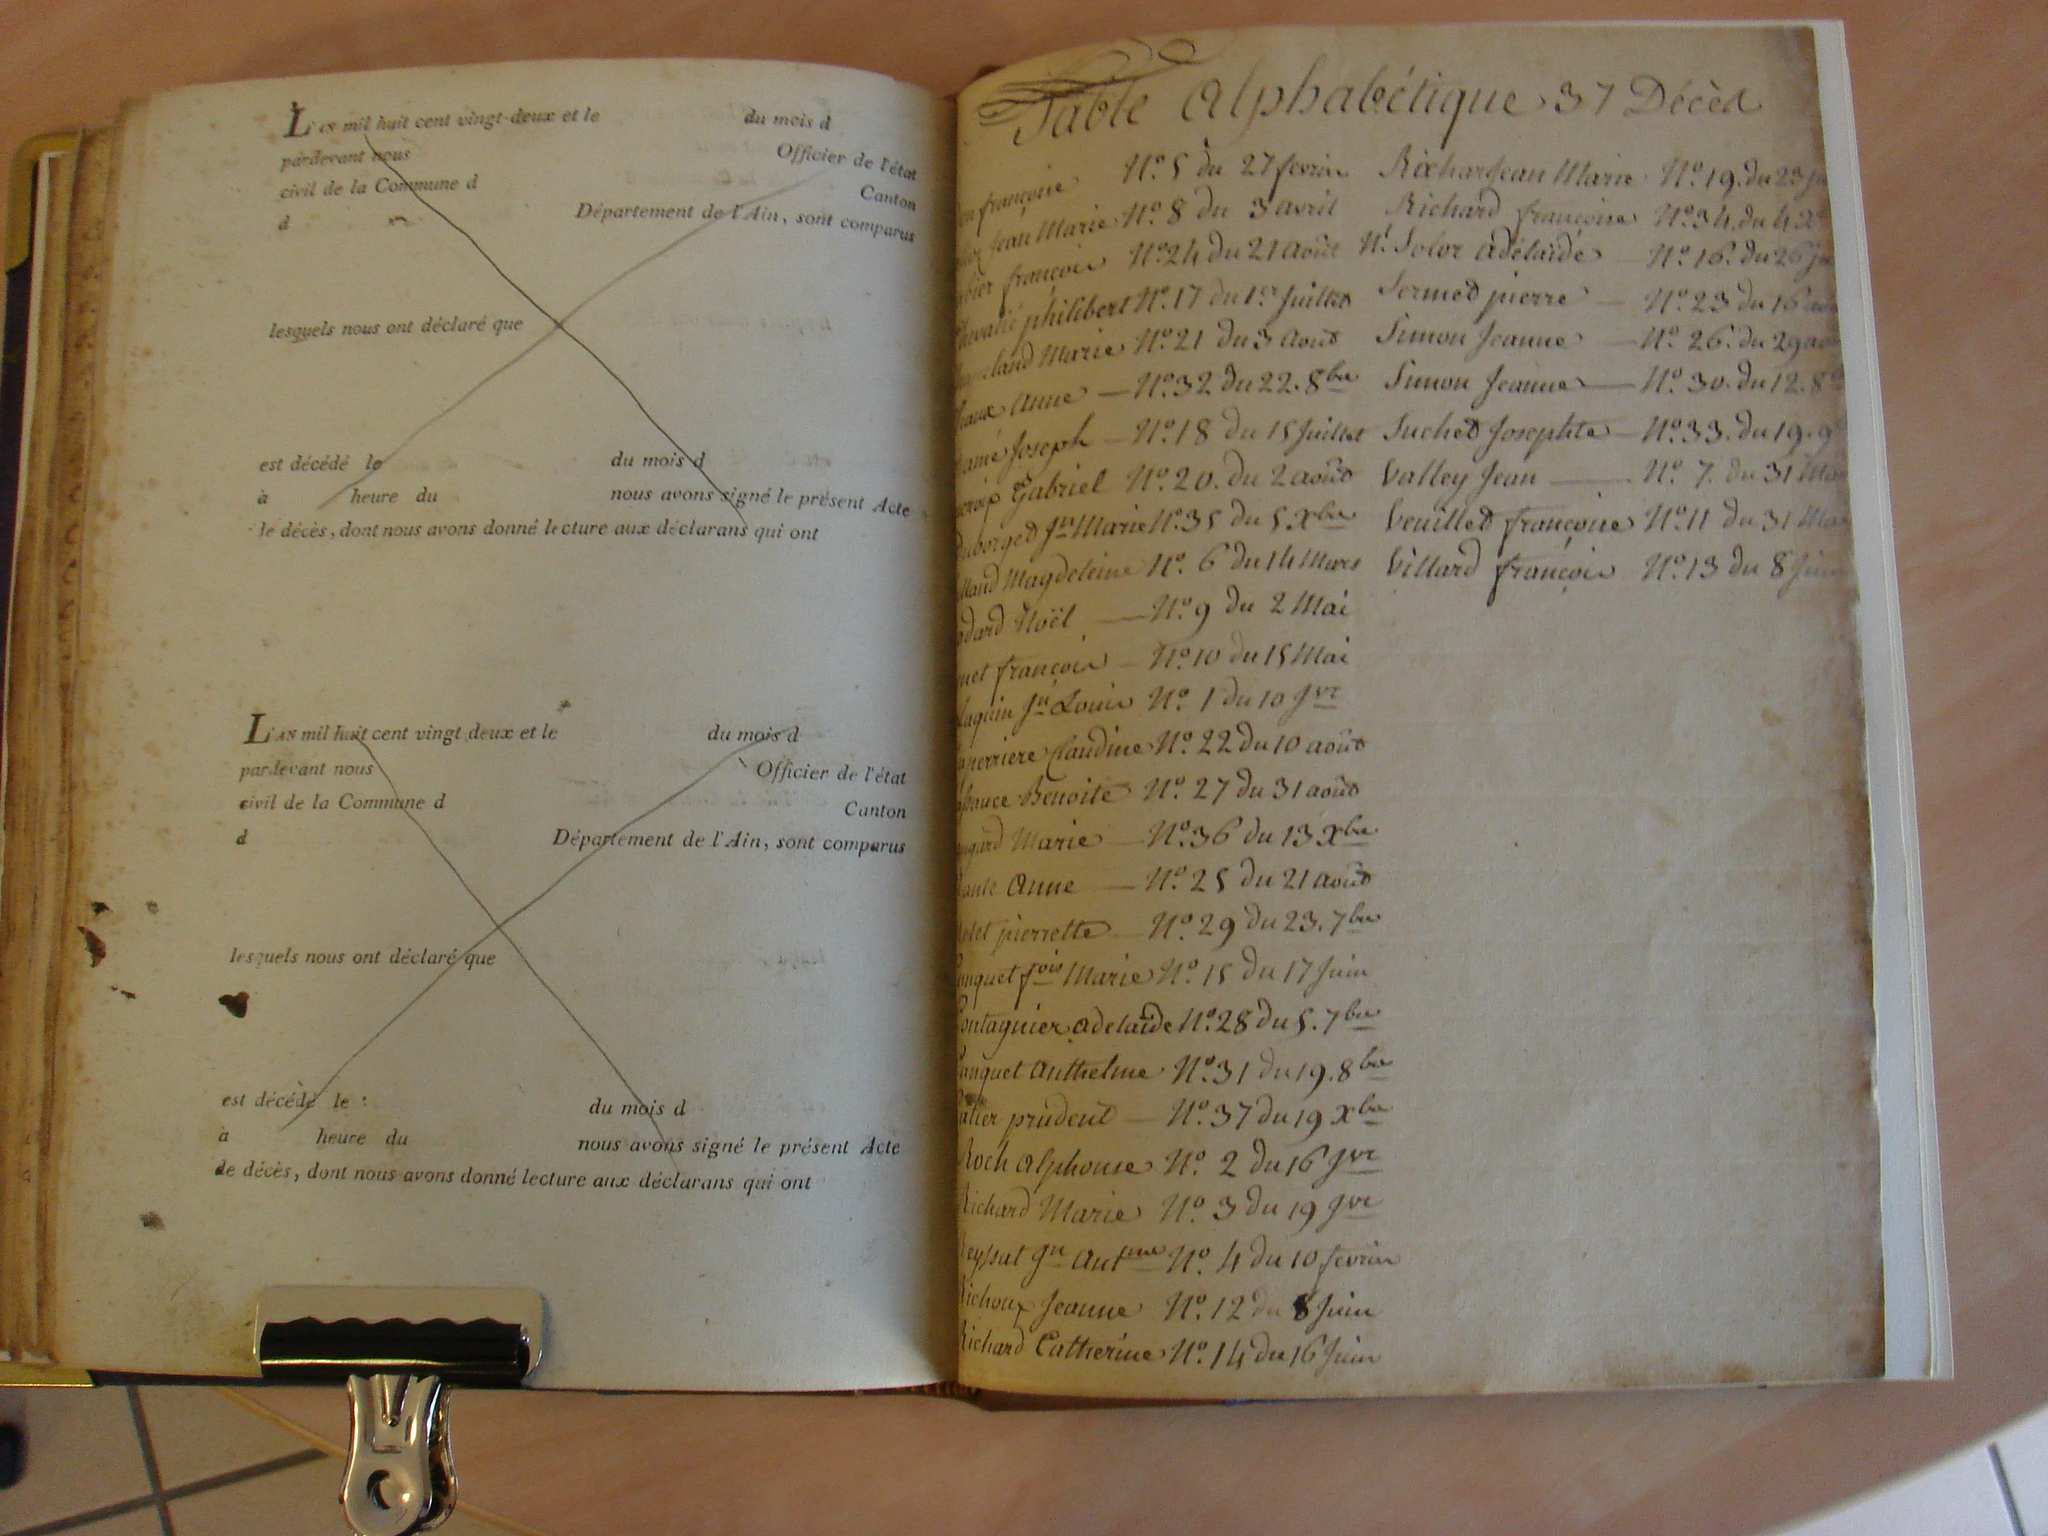 L'AN mil huit cent vingt-deux et le du mois d
pardevant nous Officier de l'état
civil de la Commune d Canton
d Département de l'Ain, sont comparus
lesquels nous ont déclaré que
est décédé le du mois d
à heure du nous avons signé le présent Acte
de décès, dont nous avons donné lecture aux déclarans qui ont
L'AN mil huit cent vingt deux et le du mois d
pardevant nous Officier de l'état
civil de la Commune d Canton
d Département de l'Ain, sont comparus
lesquels nous ont déclaré que
est décédé le du mois d
à heure du nous avons signé le présent Acte
de décès, dont nous avons donné lecture aux déclarans qui ont
Table Alphabétique 37 Décès
françoise N.o 5 du 27 fevrier
Jean Marie N.o 8 du 3 avril
françois N.o 24 du 21 août
philibert N.o 17 du 1er Juillet
Marie N.o 21 du 3 août
anne N.o 32 du 22. 8bre
Joseph N.o 18 du 15 Juillet
Gabriel N.o 20. du 2 août
Jn Marie N.o 35 du 5. Xbre
Magdeleine N.o 6 du 14 Mars
Noël N.o 9 du 2 Mai
françois N.o 10 du 15 Mai
Jn Louis N.o 1 du 10 Jvr
Claudine N.o 22 du 10 août
Benoite N.o 27 du 31 août
Marie N.o 36 du 13 Xbre
Anne N.o 25 du 21 août
pierrette N.o 29 du 23. 7bre
fois Marie N.o 15 du 17 Juin
adelaïde N.o 28 du 5. 7bre
Anthelme N.o 31 du 19. 8bre
prudent N.o 37 du 19 Xbre
Roch Alphonse N.o 2 du 16 Jvr
Richard Marie N.o 3 du 19 Jvr
Jn Antne N.o 4 du 10 fevrier
Richoux Jeanne N.o 12 du 8 Juin
Richard Catherine N.o 14 du 16 Juin
Jean Marie N.o 19. du 23
Richard françoise N.o 34. du 4 X
Adélaïde N.o 16. du 26
Sermet pierre N.o 23 du 16
Simon Jeanne N.o 26. du 29
Simon Jeanne N.o 30. du 12. 8
Suchet Josephte N.o 33. du 19. 9
Valley Jean N.o 7. du 31 Mar
Veuillet françoise N.o 11 du 31 Ma
Villard françois N.o 13 du 8 Juin